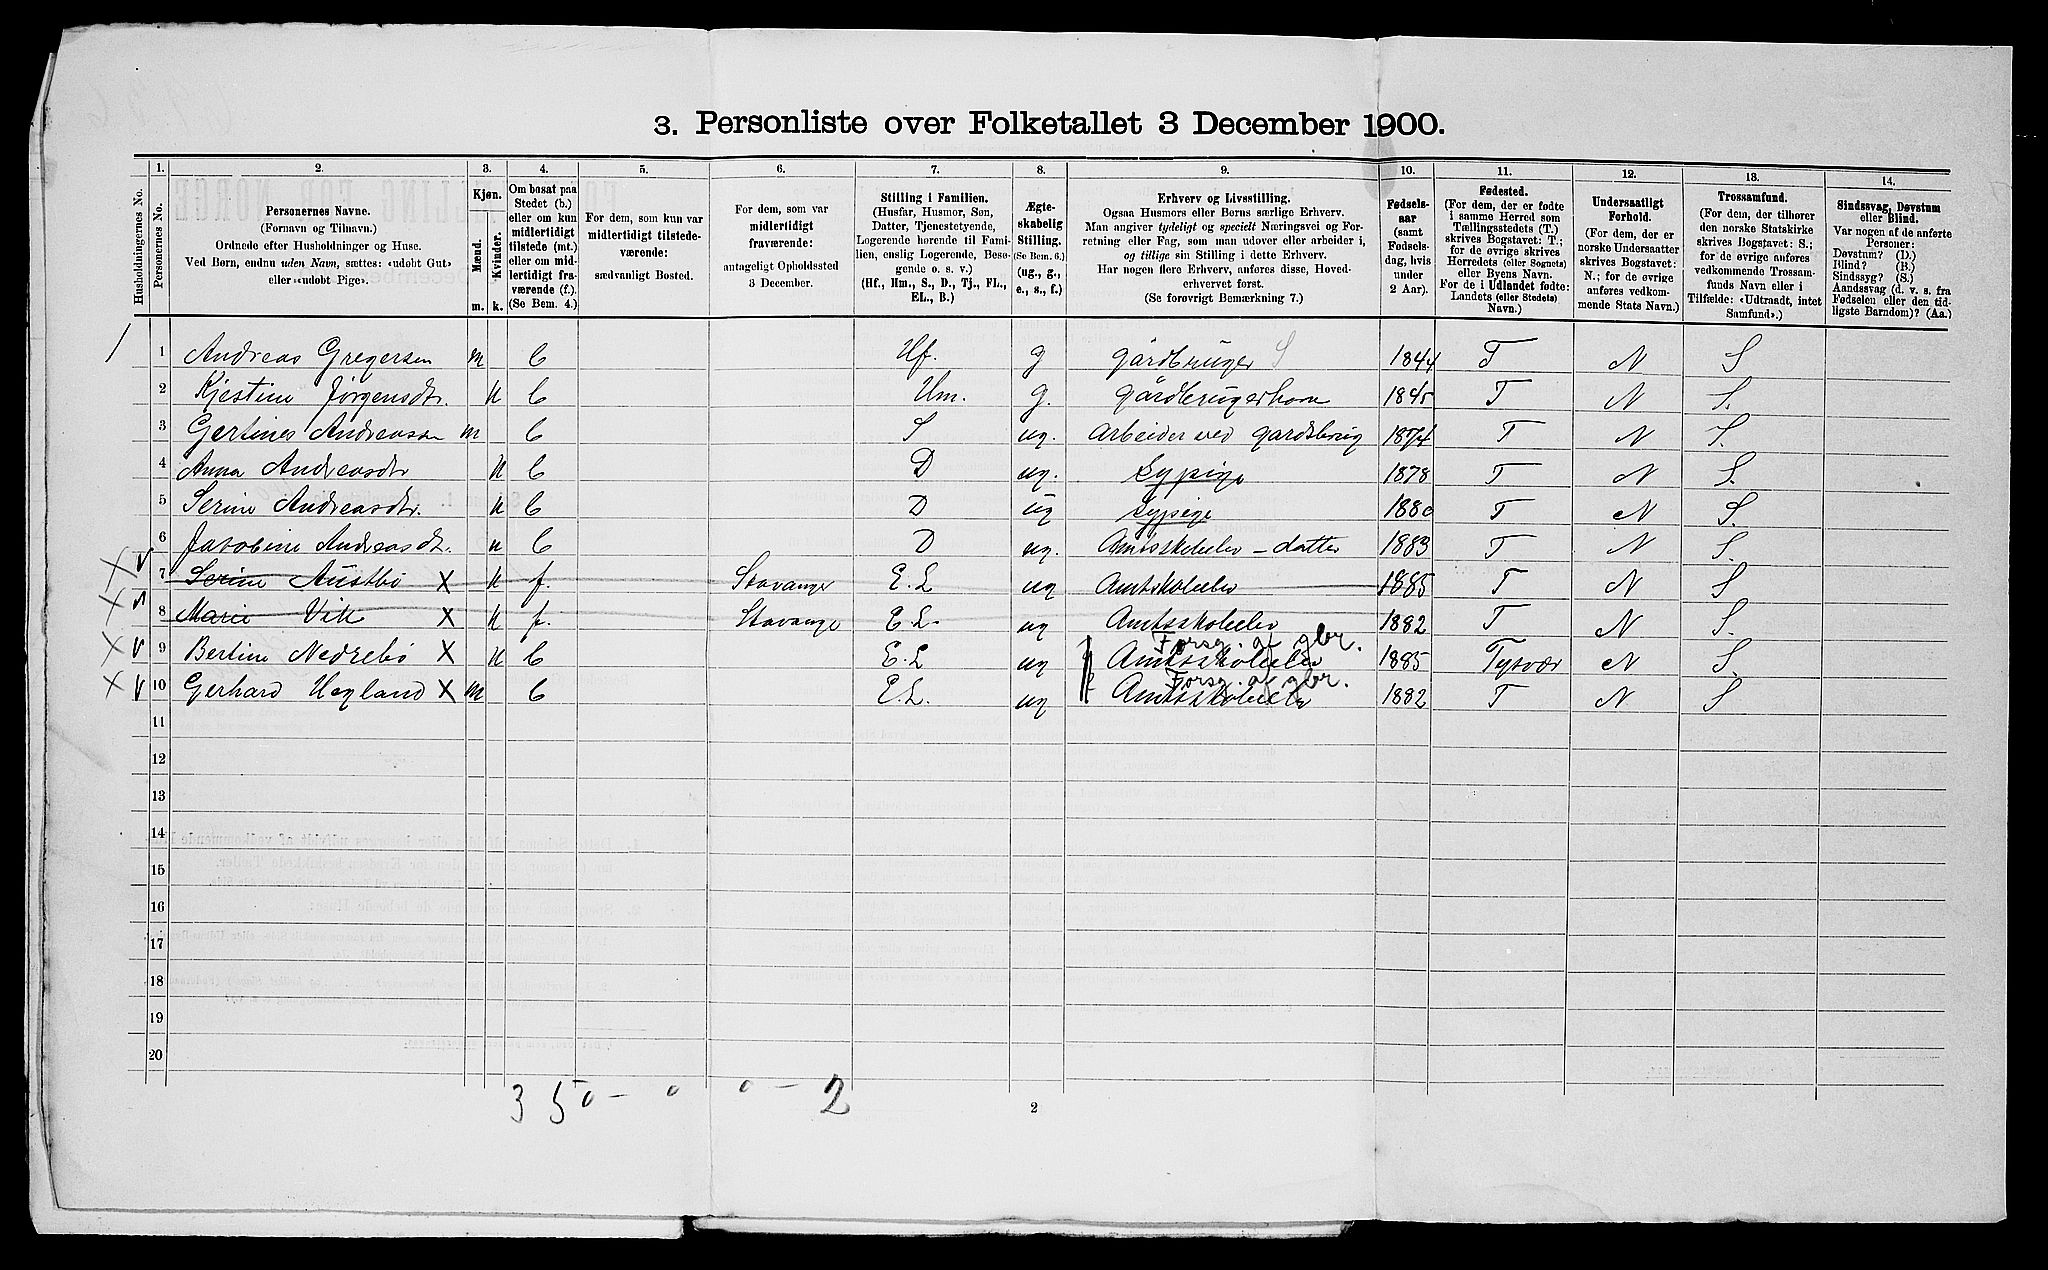 3. Personliste over Folketallet 3 December 1900.
Husholdningernes No.
1. Personernes No.
2. Personernes Navne.
(Fornavn og Tilnavn.)
Ordnede efter Husholdninger og Huse.
Ved Børn, endnu uden Navn, sættes: «udøbt Gut»
eller «udøbt Pige».
3. Kjøn.
Mænd. m.
Kvinder. k.
4. Om bosat paa
Stedet (b.)
eller om kun
midlertidigt
tilstede (mt.)
eller om mid-
lertidigt fra-
værende (f.)
(Se Bem. 4.)
5. For dem, som kun var
midlertidigt tilstede-
værende:
sædvanligt Bosted.
6. For dem, som var
midlertidigt
fraværende:
antageligt Opholdssted
3 December.
7. Stilling i Familien.
(Husfar, Husmor, Søn,
Datter, Tjenestetyende,
Logerende hørende til Fami-
lien, enslig Logerende, Besø-
gende o. s. v.)
(Hf., Hm., S., D., Tj., FL.,
EL., B.)
8. Ægte-
skabelig
Stilling.
(Se Bem. 6.)
(ug., g.,
e., s., f.)
9. Erhverv og Livsstilling.
Ogsaa Husmors eller Børns særlige Erhverv.
Man angiver tydeligt og specielt Næringsvei og For-
retning eller Fag, som man udover eller arbeider i,
og tillige sin Stilling i dette Erhverv.
Har nogen flere Erhverv, anføres disse, Hoved-
erhvervet først.
(Se forøvrigt Bemærkning 7.)
10. Fødsels-
aar
(samt
Fødsels-
dag, hvis
under
2 Aar).
11. Fødested.
(For dem, der er fødte
i samme Herred som
Tællingsstedets (T.)
skrives Bogstavet: T.;
for de øvrige skrives
Herredets (eller Sognets)
eller Byens Navn.
For de i Udlandet fødte:
Landets (eller Stedets)
Navn.)
12. Undersaatligt
Forhold.
(For dem, der er
norske Undersaatter
skrives Bogstavet:
N.; for de øvrige
anføres vedkom-
mende Stats Navn.)
13. Trossamfund.
(For dem, der tilhører
den norske Statskirke
skrives Bogstavet: S.;
for de øvrige anføres
vedkommende Trossam-
funds Navn eller i
Tilfælde: «Udtraadt, intet
Samfund».)
14. Sindssvag, Døvstum
eller Blind.
Var nogen af de anførte
Personer:
Døvstum? (D.)
Blind? (B.)
Sindssyg? (S.)
Aandssvag (d. v. s. fra
Fødselen eller den tid-
ligste Barndom)? (Aa.)
1 1 Andreas Gregersen m b Hf. g gårdbruger S 1844 T N S
2 Kjestine Jørgensdtr. k b Hm. g. gårdbrugerkone 1845 T N S.
3 Gertines Andreassen m b S ug. Arbeider ved gardsbrug 1874 T N S.
4 Anna Andreasdtr k b D ug. Sypige 1878 T N S.
5 Serine Andreasdtr. k b D ug Sypige 1880 T N S.
6 Jacobine Andreasdt. k b D ug. Amtsskoleelev - datter 1883 T N S.
X v 7 Serine Austbø X k f. Stavanger E. L ug Amtskoleelev 1885 T N S
X v 8 Marie Vik X k f. Stavanger E L. ug Amtsskoleelev 1882 T N S.
Forsø. af gbr.
X v 9 Bertine Nedrebø X k b E. L ug Amtsskoleelev 1885 Tysvær N S.
Forsø. af gbr.
X v 10 Gerhard Hegland X m b E. L. ug Amtsskoleelev 1882 T N S
11
12
13
14
15
16
17
18
19
20
3 5 0 - 0 0 - 2
2